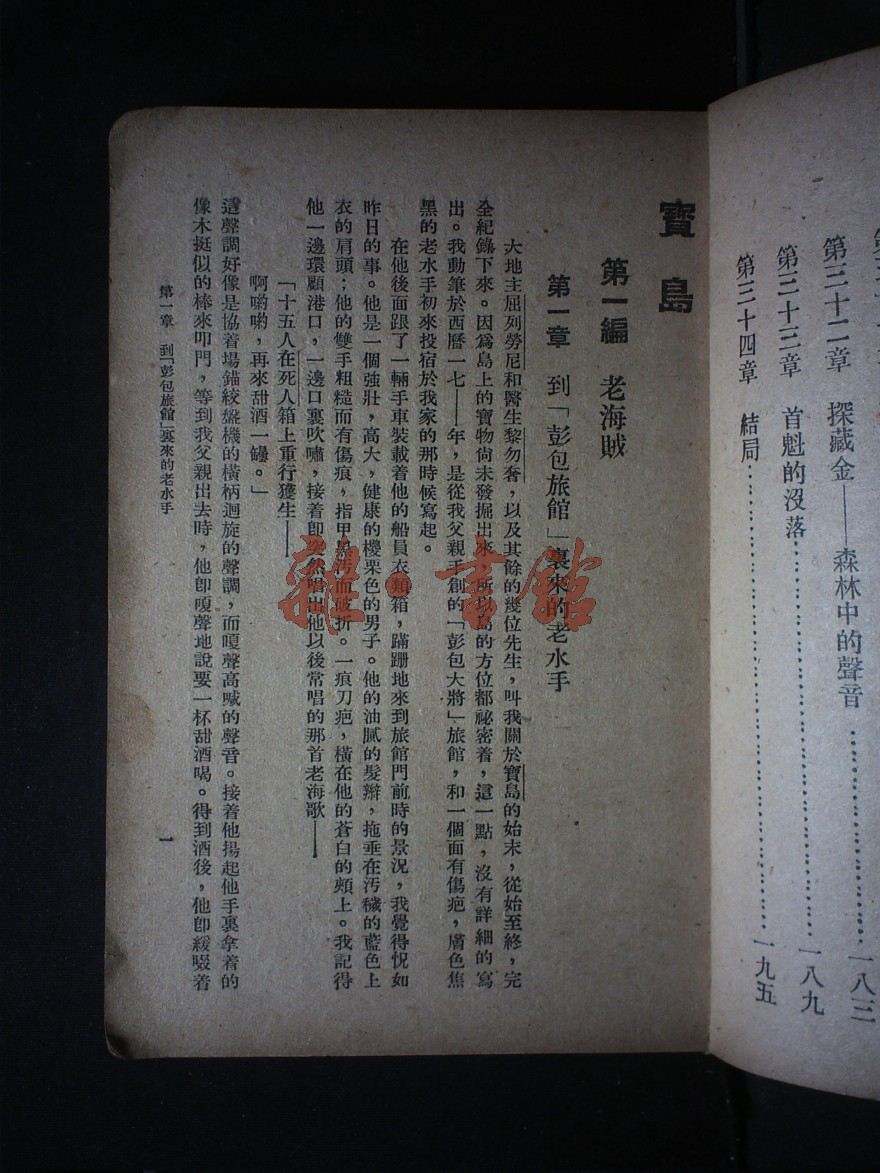 第三十二章 探藏金——森林中的聲音…………一八三
第三十三章 首魁的沒落…………一八九
第三十四章 結局…………一九五
寶島
第一編 老海賊
第一章 到「彭包旅館」裏來的老水手
大地主屈列勞尼和醫生黎勿奢，以及其餘的幾位先生，叫我關於寶島的始末，從始至終，完
全紀錄下來。因爲島上的寶物尙未發掘出來，所以島的方位都祕密着，這一點，沒有詳細的寫
出。我動筆於西曆一七——年，是從我父親手創的「彭包大將」旅館，和一個面有傷疤，膚色焦
黑的老水手初來投宿於我家的那時候寫起。
在他後面跟了一輛手車裝載着他的船員衣類箱，蹣跚地來到旅館門前時的景況，我覺得怳如
昨日的事。他是一個強壯，高大，健康的櫻栗色的男子。他的油膩的髮辮，拖垂在汚穢的藍色上
衣的肩頭；他的雙手粗糙而有傷痕，指甲黑汚而破折。一痕刀疤，橫在他的蒼白的頰上。我記得
他一邊環顧港口，一邊口裏吹嘯，接着卽突然唱出他以後常唱的那首老海歌——
「十五人在死人箱上重行獲生——
啊喲喲，再來甜酒一罎。」
這聲調好像是協着場錨絞盤機的橫柄迴旋的聲調，而嗄聲高喊的聲音。接着他揚起他手裏拿着的
像木挺似的棒來叩門，等到我父親出去時，他卽嗄聲地說要一杯甜酒喝。得到酒後，他卽緩啜着
第一章 到「彭包旅館」裏來的老水手 一
雜·書館